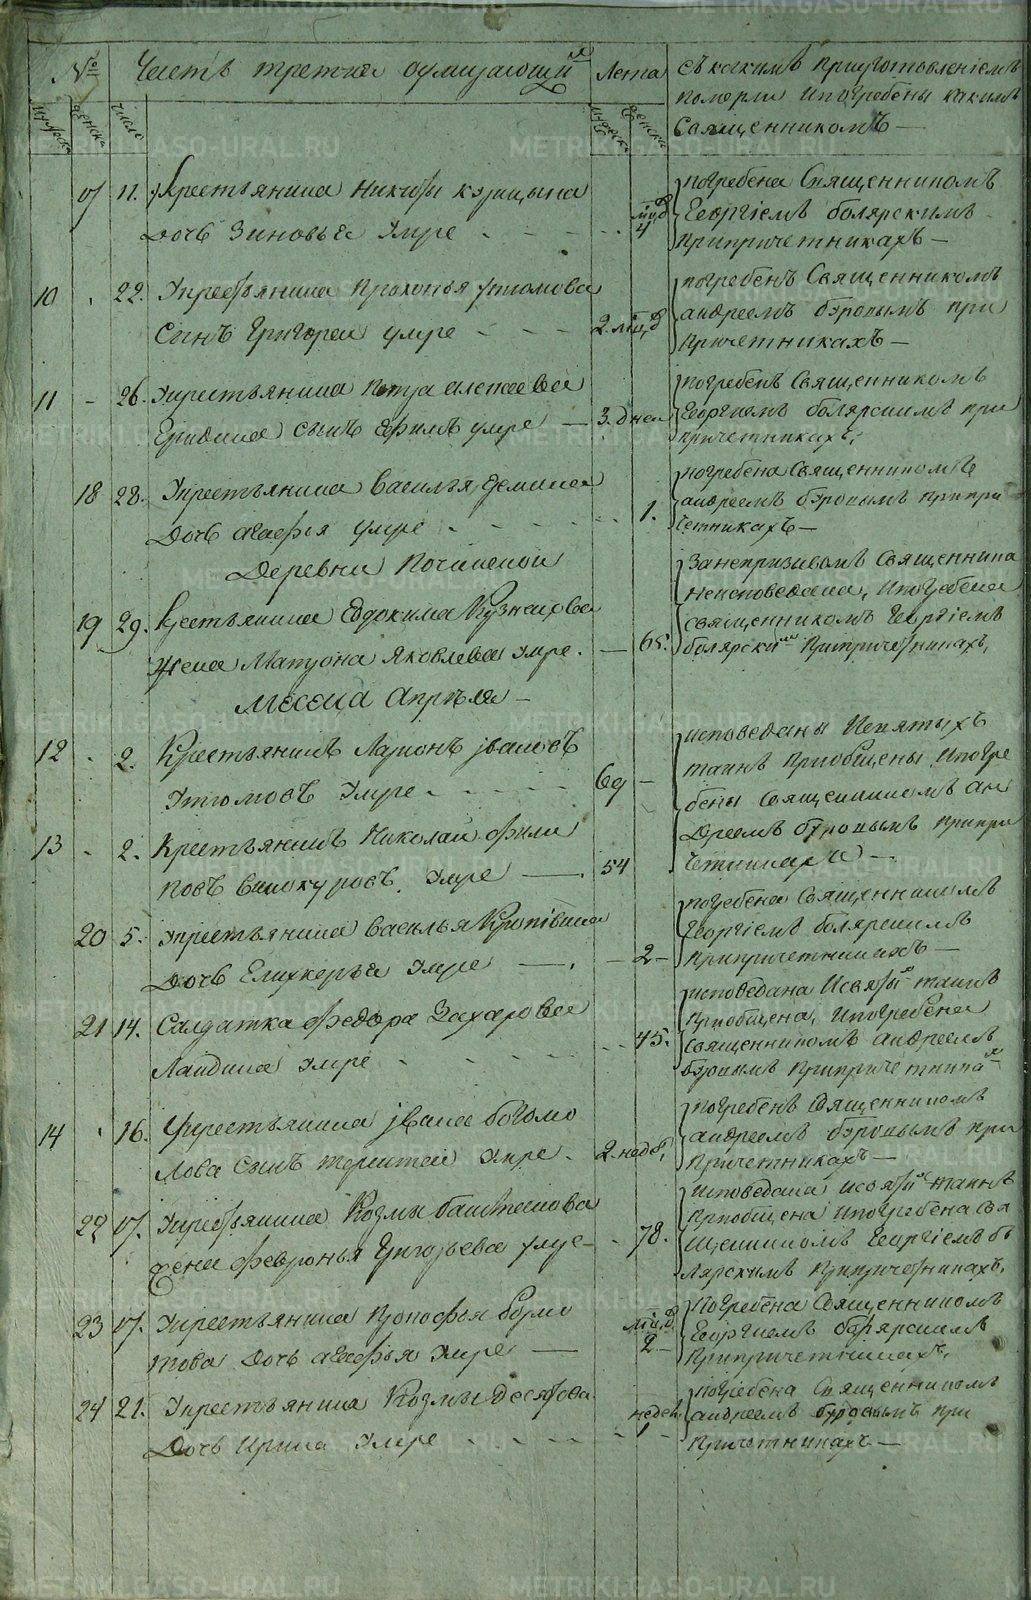 № Часть третья о умирающихъ Лета съ какимъ приуготовленіемъ
померли и погребены какимъ
священникомъ —
мужеска женска число мужеска женска
17 11. Крестьянина Никифора
дочь Зиновья умре мѣц. 4
погребена Священникомъ
Георгіемъ болярскимъ
при причетникахъ —
10 22. У крестьянина Прокопья Утюмова
сынъ Григорей умре 2. мѣц.
погребенъ Священникомъ
андреемъ буровымъ при
причетникахъ —
11 - 26. У крестьянина Петра алексеева
сынъ Ефимъ умре — 3. дней
погребенъ Священникомъ
Георгиемъ болярскимъ при
причетникахъ,
18 28. У крестьянина василья Демина
Дочь агафья умре 1.
погребена Священникомъ
андреемъ буровымъ при при
четникахъ —
Деревни Починской
19 29. Крестьянина Евдокима Кузнецова
жена Матрона Яковлева умре. — 65.
За непризывомъ Священника
неисповедана, и погребена
священникомъ Георгіемъ
болярскимъ при причетникахъ,
Месеца Апреля —
12 2. Крестьянинъ Ларионъ јвановъ
Утюмовъ умре 69 —
исповеданы и святыхъ
таинъ приобщены и погре
бены священникомъ ан
дреемъ буровымъ при при
четникахъ —
13 - 2. Крестьянинъ Николай Фили
повъ винокуровъ умре — 54
20 5. У крестьянина василья
Дочь Гликерья умре —. — 2 —
погребена Священникомъ
Георгіемъ болярскимъ
при причетникахъ —
21 14. Салдатка Федора Захарова
Ландина умре 45.
исповедана и святыхъ таинъ
приобщена, и погребена
священникомъ андреемъ
буровымъ при причетникахъ
14 16. У крестьянина јвана богомо
лова сынъ терентей умре 2 недѣ.
погребенъ Священникомъ
андреемъ буровымъ при
причетникахъ —
22 17. У крестьянина Козмы
жена Февронья Григорьева умре — 78.
исповедана и святыхъ таинъ
приобщена и погребена свя
щенникомъ Георгіемъ бо
лярскимъ при причетникахъ,
23 17. У крестьянина
това Дочь агафья умре — мѣц. 2 —
погребена Священникомъ
Георгиемъ болярскимъ
при причетникахъ,
24 21. У крестьянина Козмы Десятова
Дочь Ирина умре недел. 1 —
погребена Священникомъ
андреемъ буровымъ при
причетникахъ —
METRIKI.GASO-URAL.RU